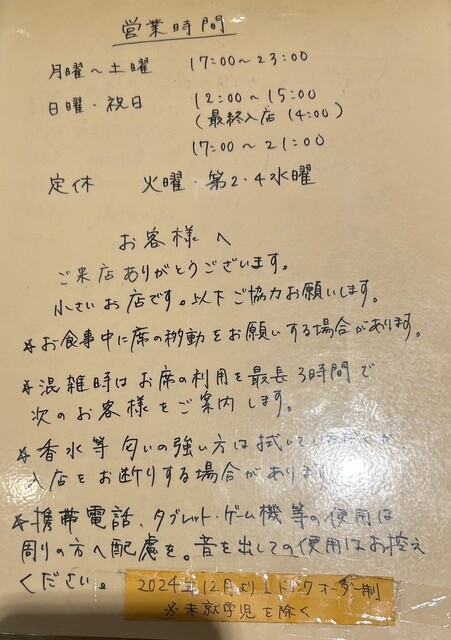 営業時間
月曜～土曜 17:00～23:00
日曜・祝日 12:00～15:00
(最終入店 14:00)
17:00～21:00
定休 火曜・第2・4水曜
お客様へ
ご来店ありがとうございます。
小さいお店です。以下ご協力お願いします。
※お食事中に席の移動をお願いする場合があります。
※混雑時はお席の利用を最長3時間で
次のお客様をご案内します。
※香水等匂いの強い方は拭いていただくか
入店をお断りする場合があります
※携帯電話、タブレット・ゲーム機等の使用は
周りの方へ配慮を。音を出しての使用はお控え
ください。
2024年12月より1ドリンクオーダー制
※未就学児を除く